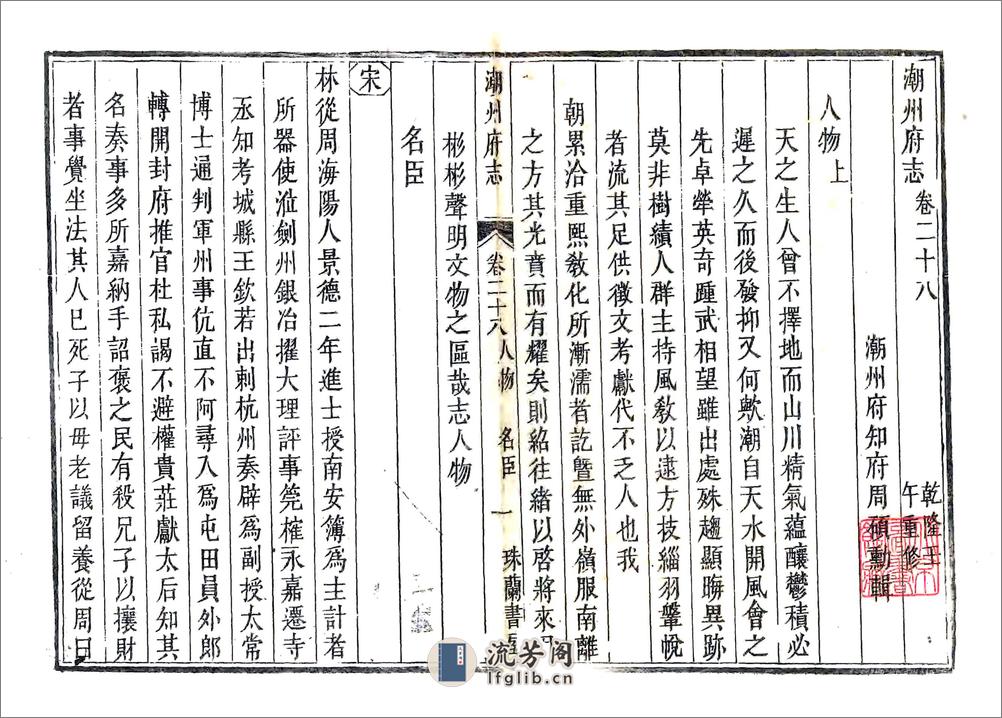 潮州府志 卷二十八
乾隆壬午重修
潮州府知府周碩勳輯
人物上
天之生人曾不擇地而山川精氣蘊釀鬱積必
遲之久而後發抑又何歟潮自天水開風會之
先卓犖英奇踵武相望雖出處殊趨顯晦異跡
莫非樹績人群主持風教以逮方技緇羽鞶帨
者流其足供徵文考獻代不乏人也我
朝累洽重熙教化所漸濡者訖暨無外嶺服南離
之方其光賁而有耀矣則紹往緒以啓將來
潮州府志 卷二十八 人物 名臣 一 珠蘭書屋
彬彬聲明文物之區哉志人物
名臣
宋
林從周海陽人景德二年進士授南安簿為主計者
所器使涖劍州銀冶擢大理評事筦榷永嘉遷寺
丞知考城縣王欽若出刺杭州奏辟為副授太常
博士通判軍州事伉直不阿尋入為屯田員外郎
轉開封府推官杜私謁不避權貴莊獻太后知其
名奏事多所嘉納手詔褒之民有殺兄子以攘財
者事覺坐法其人已死子以毋老議留養從周曰
流芳阁
lfglib.cn